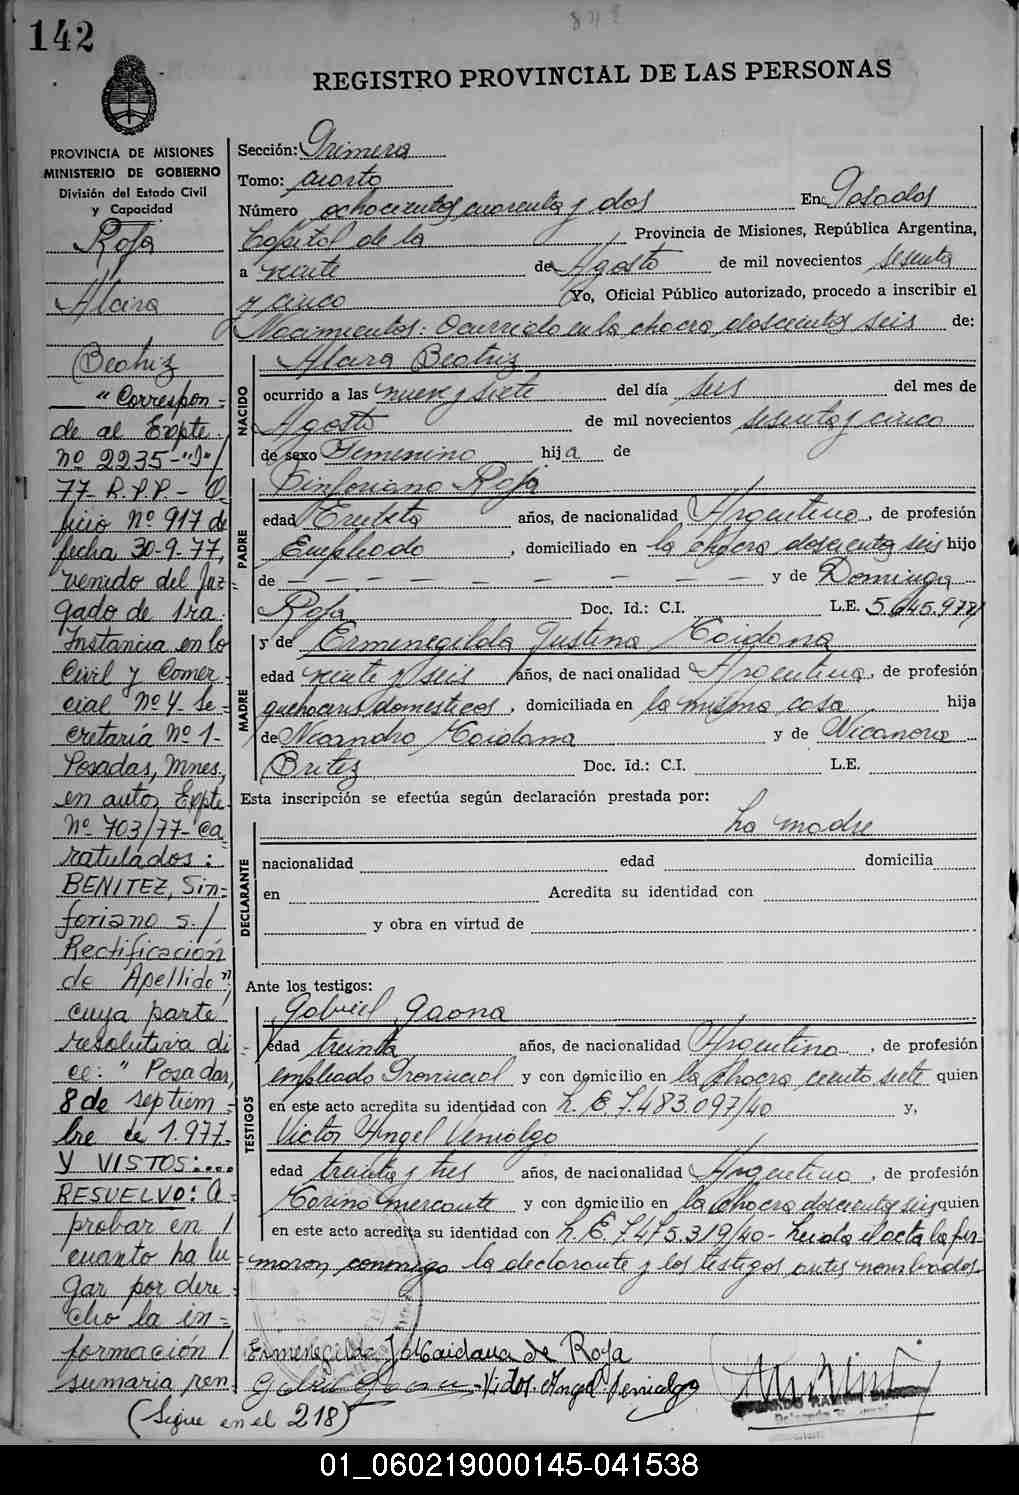 142
REGISTRO PROVINCIAL DE LAS PERSONAS
PROVINCIA DE MISIONES
MINISTERIO DE GOBIERNO
División del Estado Civil
y Capacidad
Roja
Alcira
Beatriz
"Correspon-
de al Expte.
Nº 2235-"J"/
77- R.P.P - O
ficio Nº 917 de
fecha 30-9-77,
venido del Juz-
gado de 1ra.
Instancia en lo
Civil y Comer-
cial Nº 4- Se-
cretaría Nº 1-
Posadas, Mnes.,
en autos Expte
Nº 703/77- Ca
ratulados:
BENITEZ, Sin-
foriano s./
Rectificación
de Apellido",
cuya parte
resolutiva di-
ce: "Posadas,
8 de septiem-
bre de 1.977-
Y VISTOS:....
RESUELVO: A-
probar en /
cuanto ha lu-
gar por dere-
cho la in-
formación /
sumaria ren
(Sigue en el 218)
Sección: Primera
Tomo: cuarto
Número ochocientos cuarenta y dos En Posadas
Capital de la Provincia de Misiones, República Argentina,
a veinte de Agosto de mil novecientos sesenta
y cinco Yo, Oficial Público autorizado, procedo a inscribir el
Nacimientos: Ocurrido en la chacra doscientos seis de:
NACIDO
Alcira Beatriz
ocurrido a las nueve y siete del día seis del mes de
Agosto de mil novecientos sesenta y cinco
de sexo Femenino hija de
PADRE
Sinforiano Roja
edad Treinta años, de nacionalidad Argentino, de profesión
Empleado, domiciliado en la chacra doscientos seis hijo
de — — — — — — — — y de Dominga
Roja Doc. Id.: C.I. L.E. 5.645.977
MADRE
y de Ermenegilda Justina Maidana
edad veinte y seis años, de nacionalidad Argentina, de profesión
quehaceres domesticos, domiciliada en la misma casa hija
de Nicandro Maidana y de Nicanora
Britez Doc. Id.: C.I. L.E.
Esta inscripción se efectúa según declaración prestada por:
DECLARANTE
La madre
nacionalidad edad domicilia
en Acredita su identidad con
y obra en virtud de
Ante los testigos:
TESTIGOS
Gabriel Gaona
edad treinta años, de nacionalidad Argentino, de profesión
empleado Provincial y con domicilio en la chacra ciento siete quien
en este acto acredita su identidad con L.E. 7.483.097/40 y,
Victor Angel Verialgo
edad treinta y tres años, de nacionalidad Argentino, de profesión
Marino mercante y con domicilio en la chacra doscientos seis quien
en este acto acredita su identidad con L.E. 7475.319/40- Leida el acta la fir-
maron conmigo la declarante y los testigos antes nombrados.
Ermenegilda J. Maidana de Roja
01_060219000145-041538